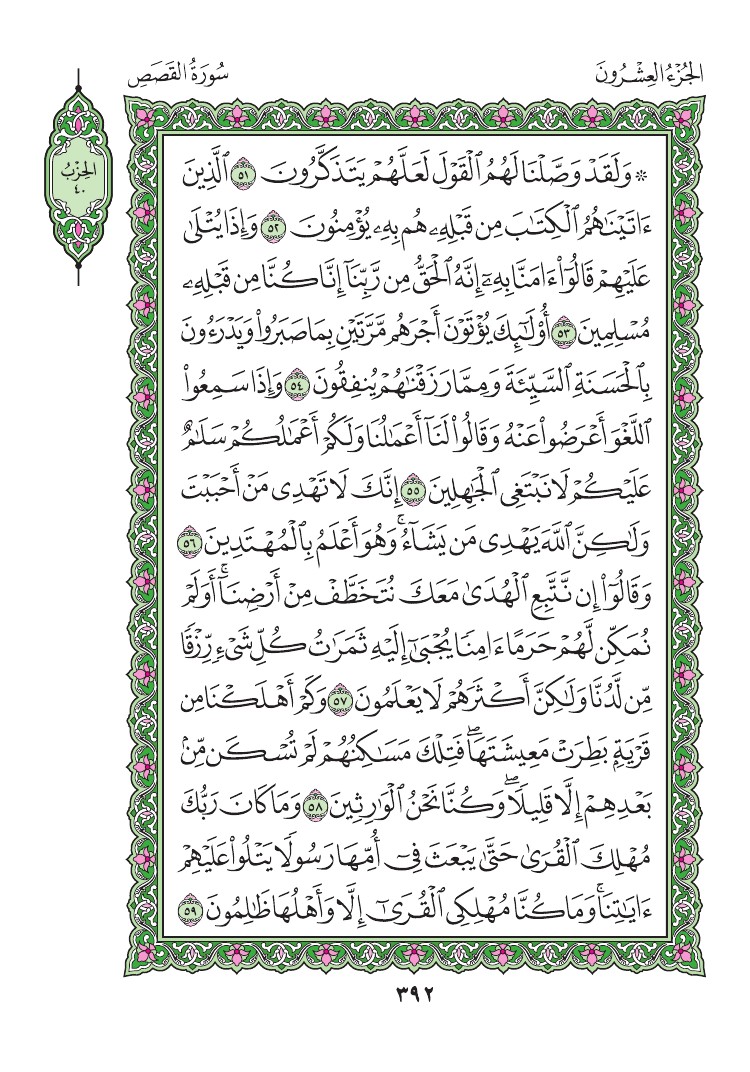 الجُزْءُ العِشْرُونَ
سُورَةُ القَصَصِ
الحِزْبُ
٤٠
۞ وَلَقَدْ وَصَّلْنَا لَهُمُ ٱلْقَوْلَ لَعَلَّهُمْ يَتَذَكَّرُونَ ٥١ ٱلَّذِينَ
ءَاتَيْنَٰهُمُ ٱلْكِتَٰبَ مِن قَبْلِهِۦ هُم بِهِۦ يُؤْمِنُونَ ٥٢ وَإِذَا يُتْلَىٰ
عَلَيْهِمْ قَالُوٓا۟ ءَامَنَّا بِهِۦٓ إِنَّهُ ٱلْحَقُّ مِن رَّبِّنَآ إِنَّا كُنَّا مِن قَبْلِهِۦ
مُسْلِمِينَ ٥٣ أُو۟لَٰٓئِكَ يُؤْتَوْنَ أَجْرَهُم مَّرَّتَيْنِ بِمَا صَبَرُوا۟ وَيَدْرَءُونَ
بِٱلْحَسَنَةِ ٱلسَّيِّئَةَ وَمِمَّا رَزَقْنَٰهُمْ يُنفِقُونَ ٥٤ وَإِذَا سَمِعُوا۟
ٱللَّغْوَ أَعْرَضُوا۟ عَنْهُ وَقَالُوا۟ لَنَآ أَعْمَٰلُنَا وَلَكُمْ أَعْمَٰلُكُمْ سَلَٰمٌ
عَلَيْكُمْ لَا نَبْتَغِى ٱلْجَٰهِلِينَ ٥٥ إِنَّكَ لَا تَهْدِى مَنْ أَحْبَبْتَ
وَلَٰكِنَّ ٱللَّهَ يَهْدِى مَن يَشَآءُ ۚ وَهُوَ أَعْلَمُ بِٱلْمُهْتَدِينَ ٥٦
وَقَالُوٓا۟ إِن نَّتَّبِعِ ٱلْهُدَىٰ مَعَكَ نُتَخَطَّفْ مِنْ أَرْضِنَآ ۚ أَوَلَمْ
نُمَكِّن لَّهُمْ حَرَمًا ءَامِنًا يُجْبَىٰٓ إِلَيْهِ ثَمَرَٰتُ كُلِّ شَىْءٍ رِّزْقًا
مِّن لَّدُنَّا وَلَٰكِنَّ أَكْثَرَهُمْ لَا يَعْلَمُونَ ٥٧ وَكَمْ أَهْلَكْنَا مِن
قَرْيَةٍۭ بَطِرَتْ مَعِيشَتَهَا ۖ فَتِلْكَ مَسَٰكِنُهُمْ لَمْ تُسْكَن مِّنۢ
بَعْدِهِمْ إِلَّا قَلِيلًا ۖ وَكُنَّا نَحْنُ ٱلْوَٰرِثِينَ ٥٨ وَمَا كَانَ رَبُّكَ
مُهْلِكَ ٱلْقُرَىٰ حَتَّىٰ يَبْعَثَ فِىٓ أُمِّهَا رَسُولًا يَتْلُوا۟ عَلَيْهِمْ
ءَايَٰتِنَا ۚ وَمَا كُنَّا مُهْلِكِى ٱلْقُرَىٰٓ إِلَّا وَأَهْلُهَا ظَٰلِمُونَ ٥٩
٣٩٢